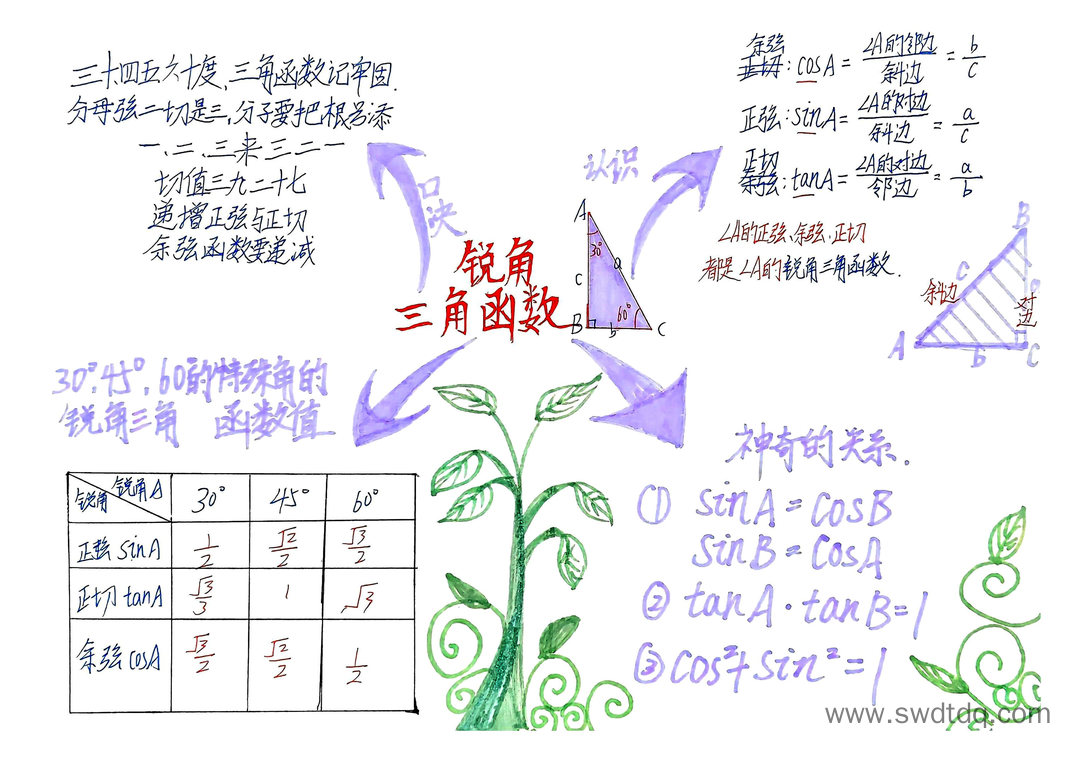 三十四五六十度,三角函数记牢固.
分母弦二切是三,分子要把根号添
一.二.三来三二一
切值三九二十七
递增正弦与正切
余弦函数要递减
口决
认识
余弦
正切: cosA = ∠A的邻边/斜边 = b/c
正弦: sinA = ∠A的对边/斜边 = a/c
正切
余弦: tanA = ∠A的对边/邻边 = a/b
∠A的正弦、余弦、正切
都是∠A的锐角三角函数.
锐角
三角函数
A
30°
a
c
60°
B
b
C
B
c
a
斜边
对边
A
b
C
30°.45°.60°的特殊角的
锐角三角 函数值
锐角 锐角A 30° 45° 60°
正弦 sinA 1/2 √2/2 √3/2
正切 tanA √3/3 1 √3
余弦 cosA √3/2 √2/2 1/2
神奇的关系.
① sinA = cosB
sinB = cosA
② tanA·tanB=1
③ cos²+sin²=1
www.swdtdq.com